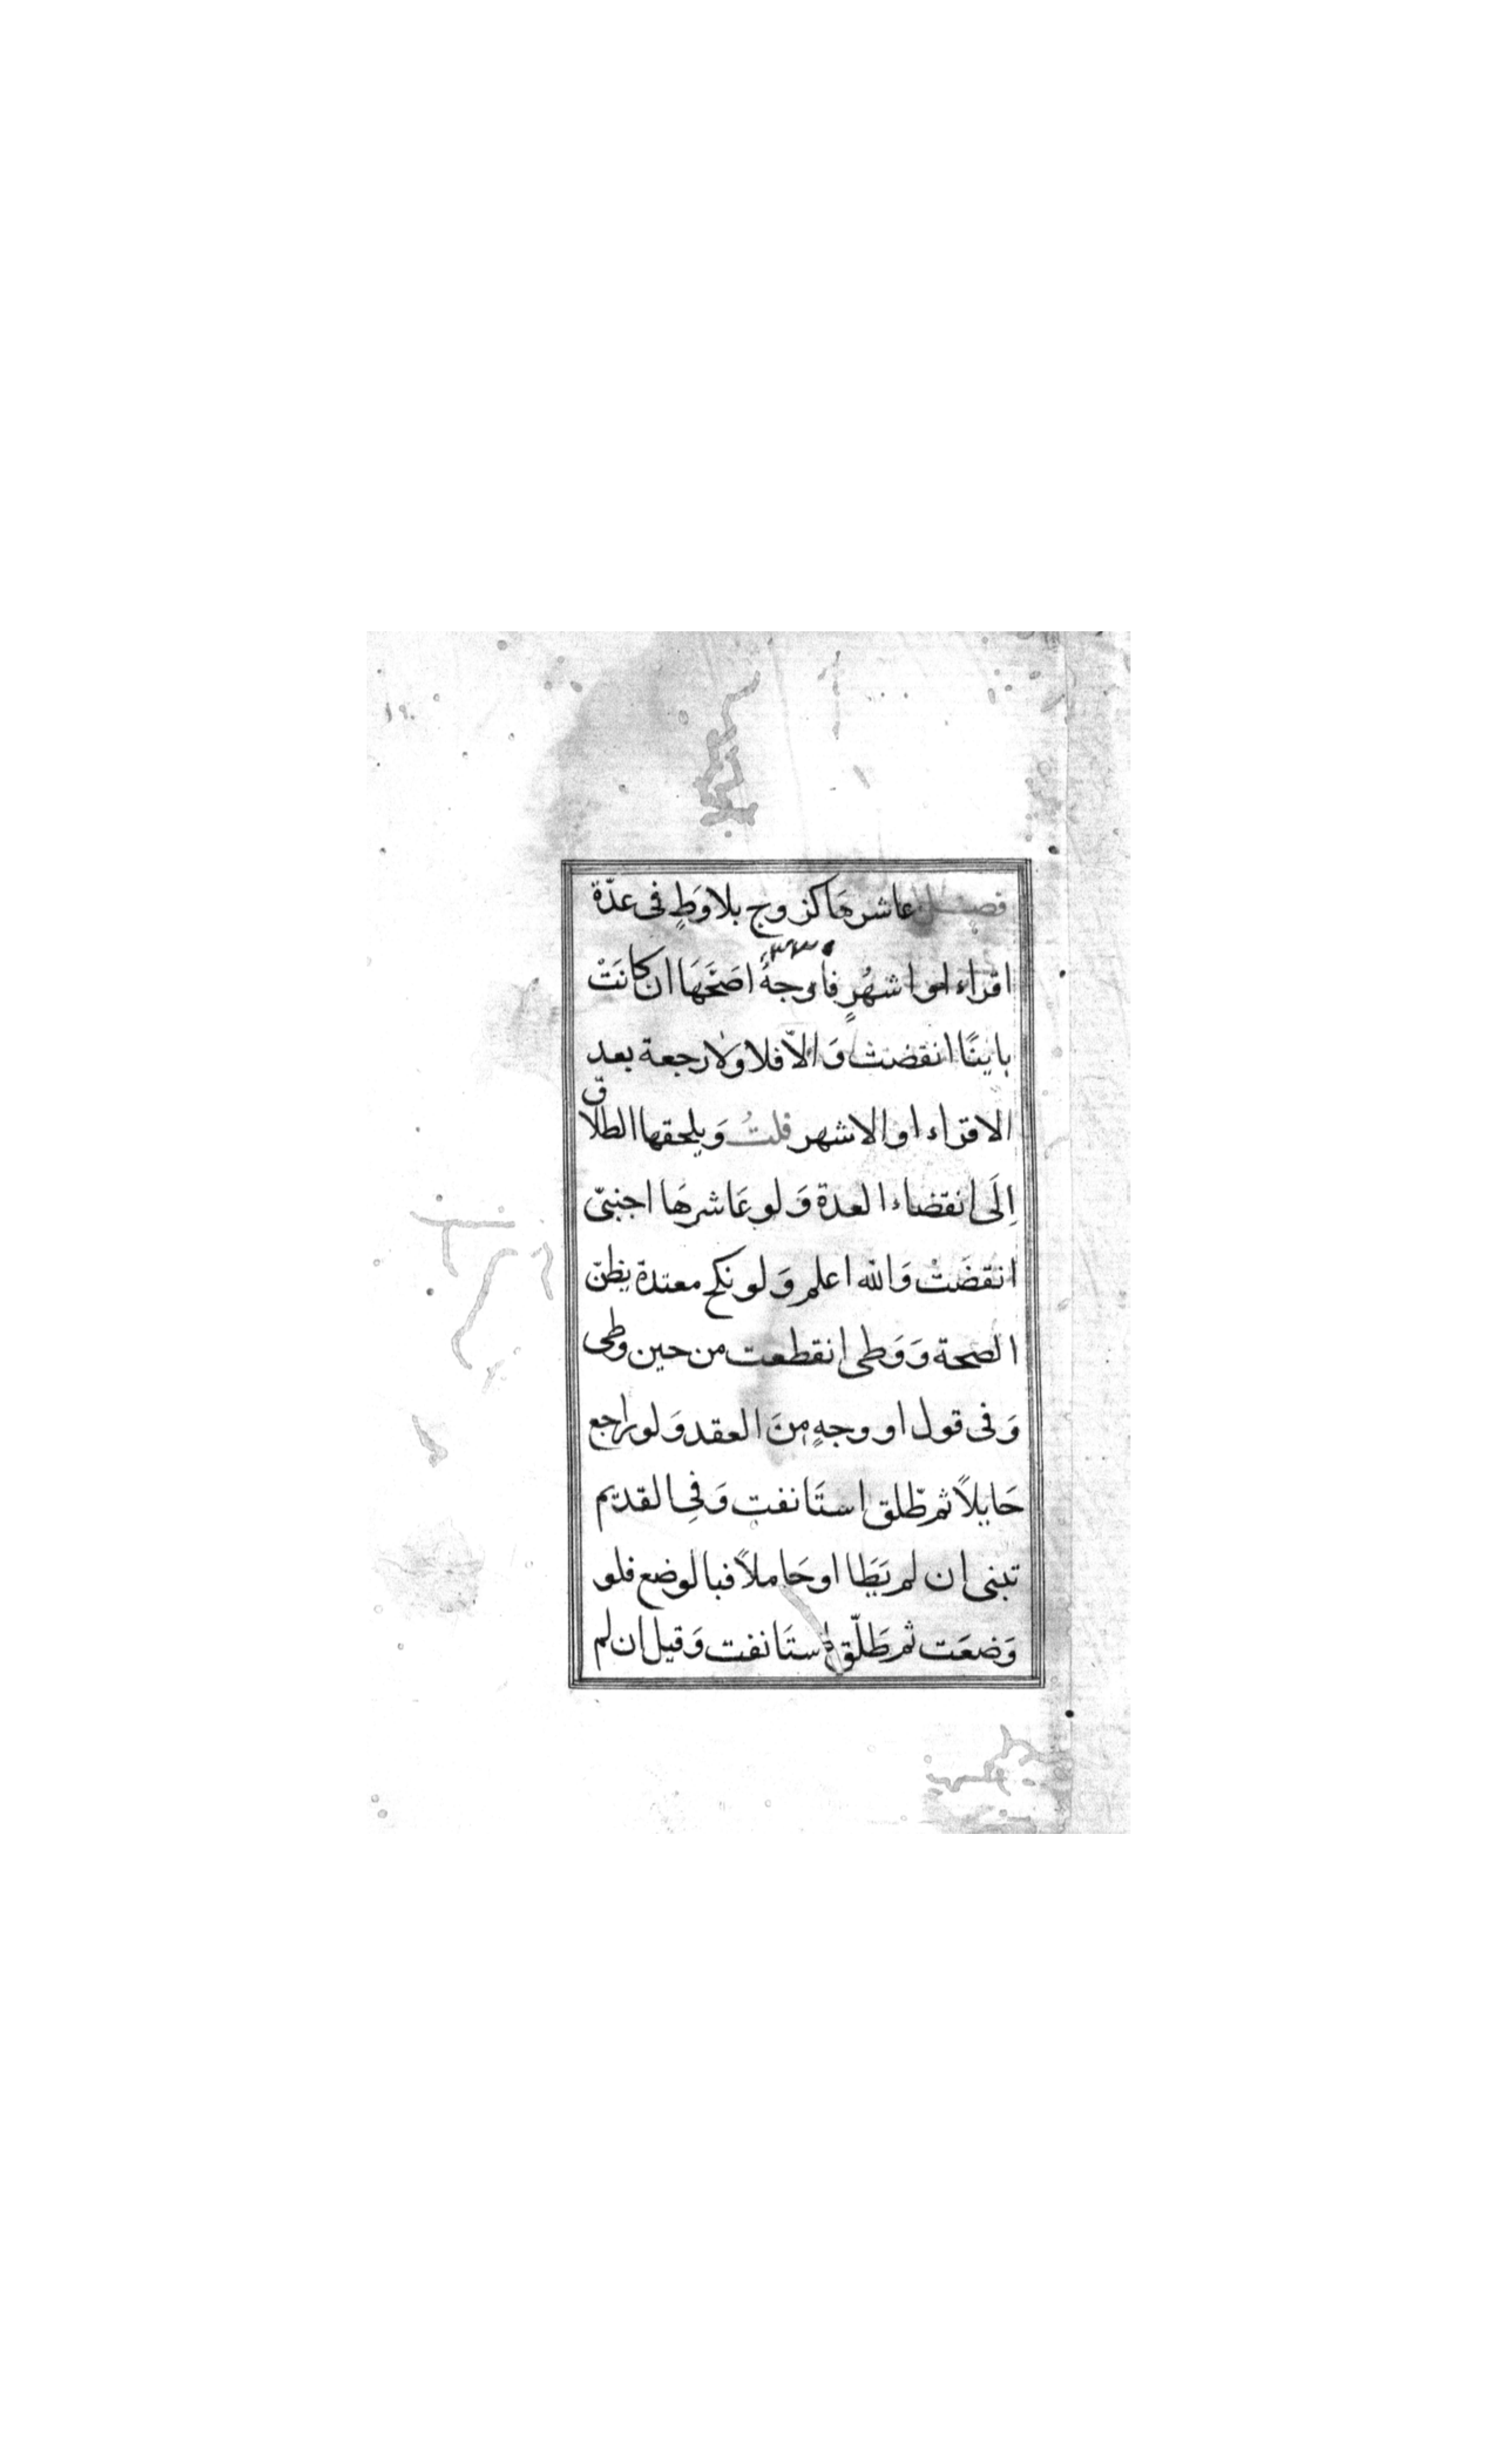 ١٩٠
فصل عاشرهَا كزوج بلا وَطٍ فى عدّة
اقراء او اشهُرٍ فاوجهٌ اصَحّهَا ان كانَتْ
باينًا انقضت وَالّا فلا ولا رجعة بعد
الاقراء او الاشهر قلتُ وَيلحقها الطلاق
اِلَى انقضاء العدة وَلو عَاشرهَا اجنبىّ
انقضَتْ وَالله اعلم وَلو نكح معتدة بظنّ
الصحة وَوَطى انقطعت من حين وطى
وَفى قول او وجهٍ منَ العقد وَلو راجع
حَايلاً ثم طلق استَانفت وَفِى القديم
تبنى ان لم يَطَا او حَاملاً فبالوضع فلو
وَضعَت ثم طَلّق استَانفت وَقيل ان لم